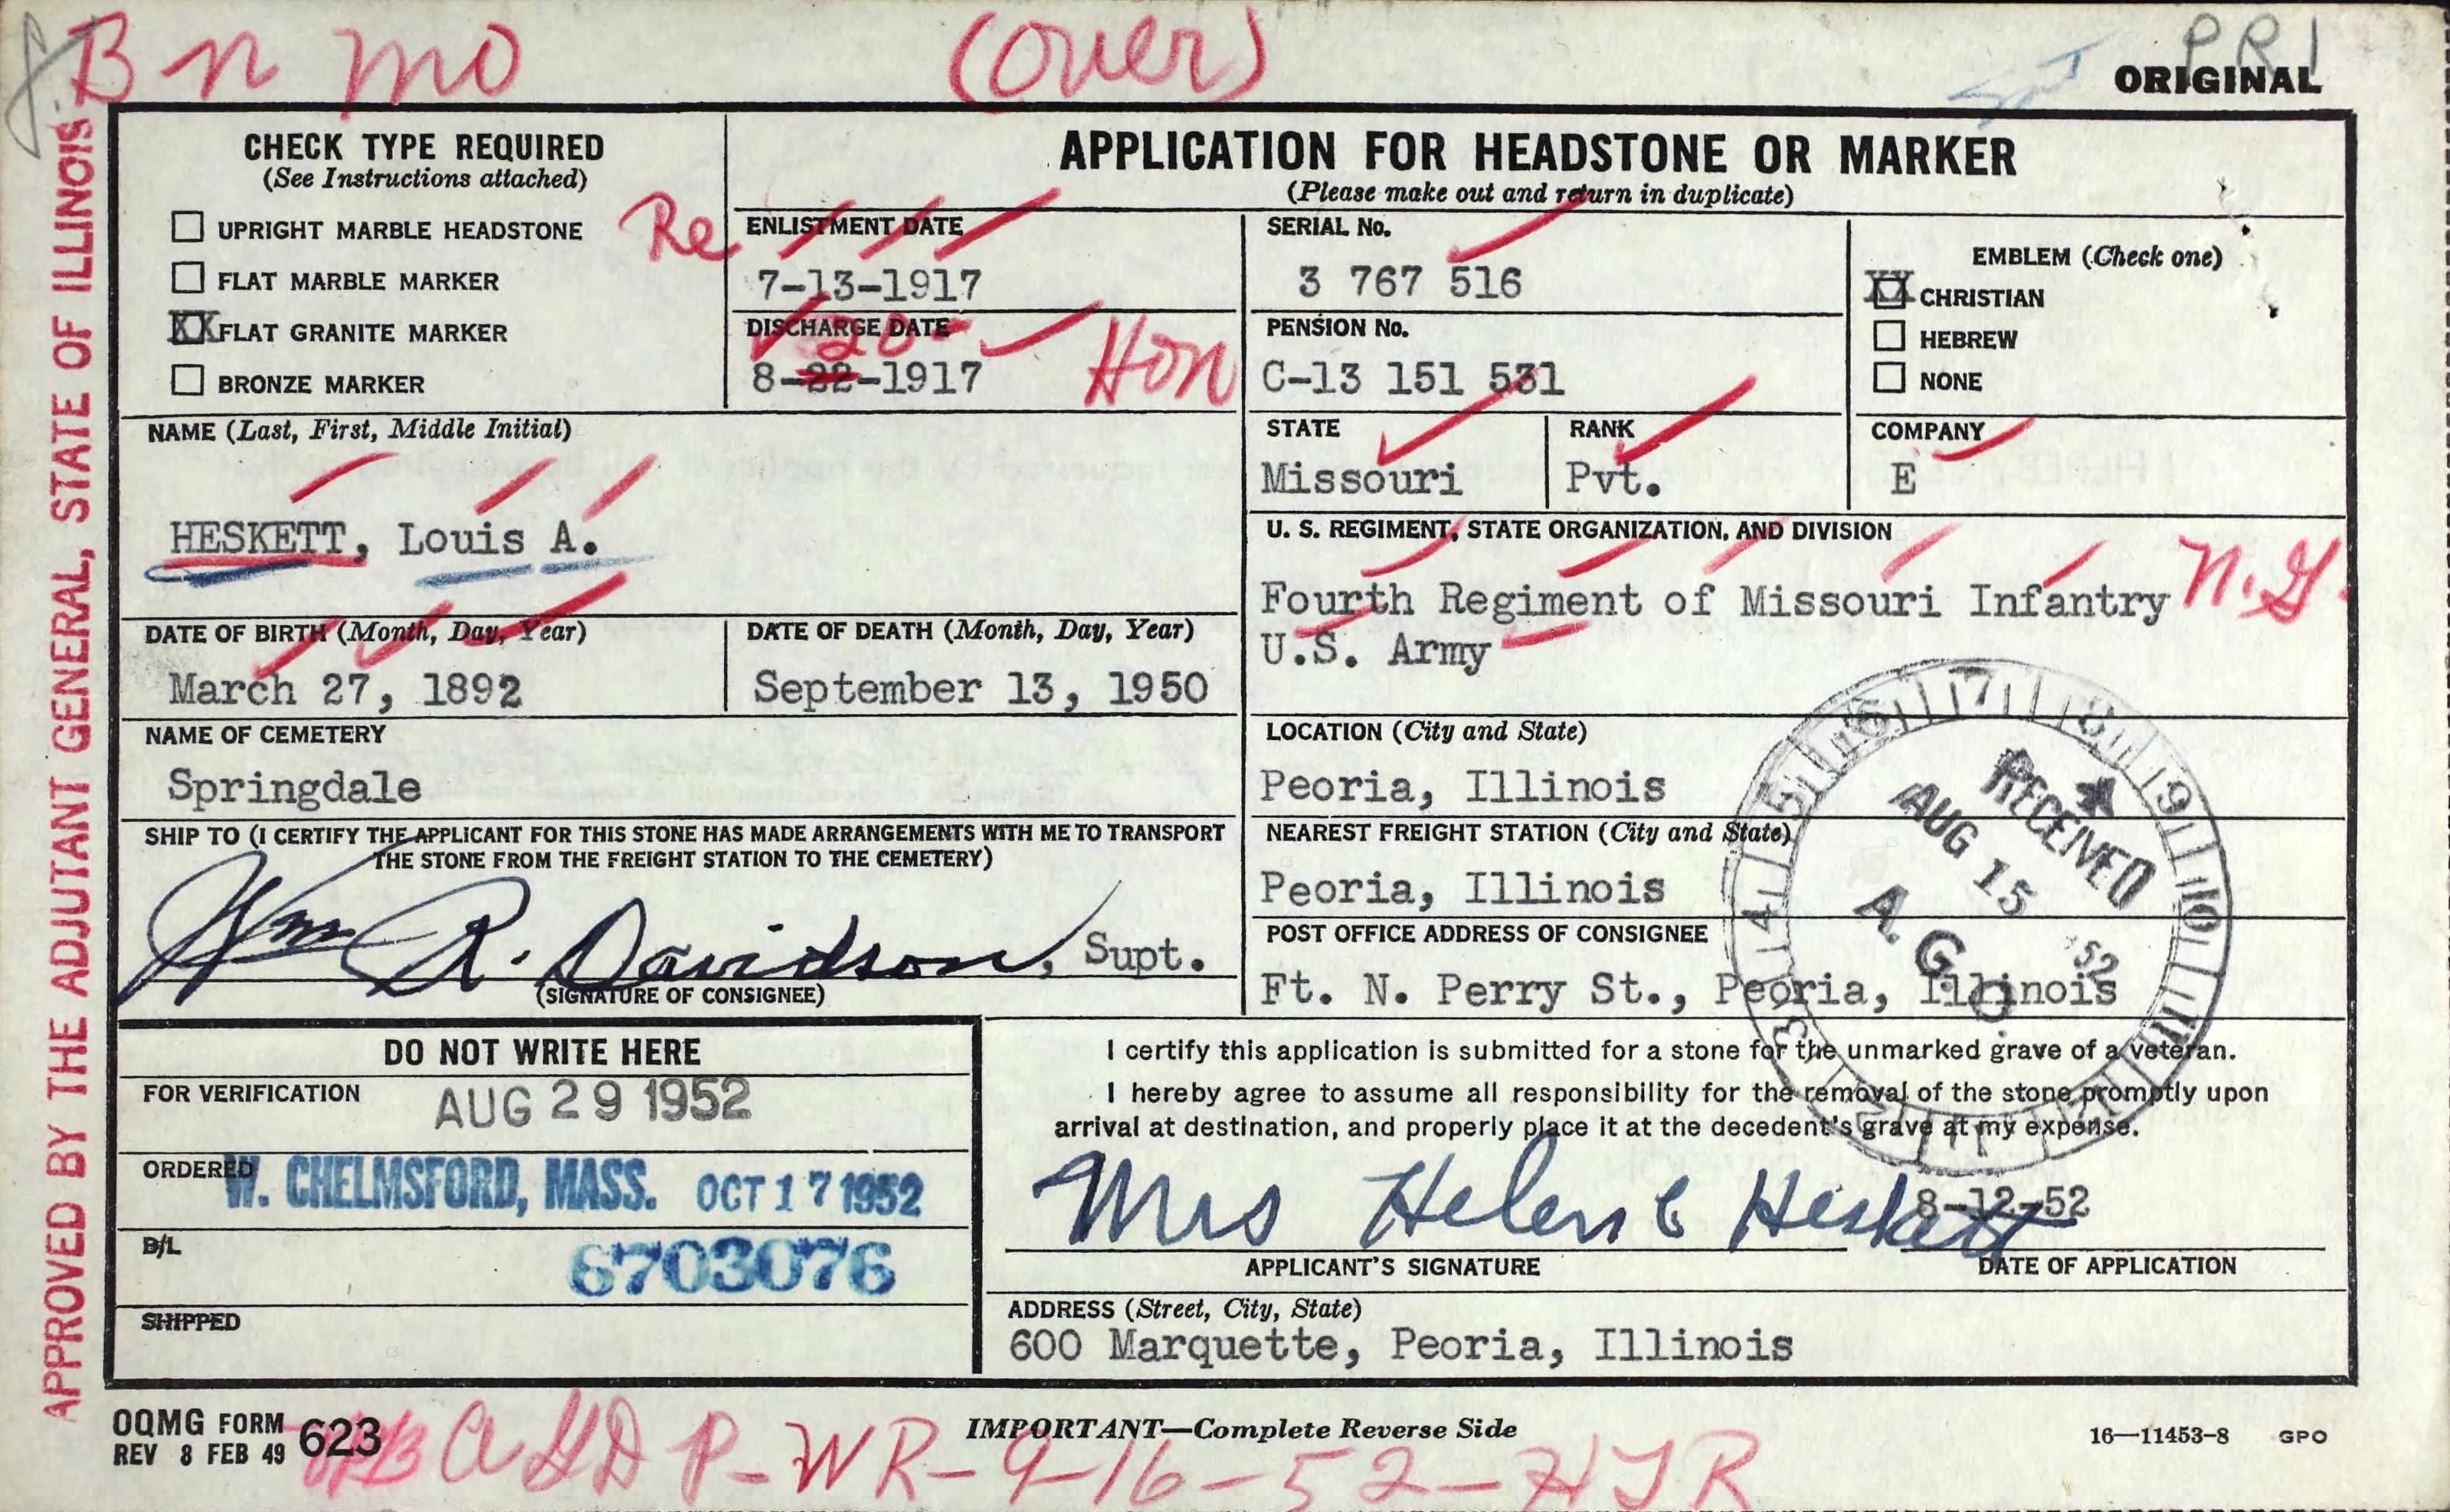 B n mo (over) PR1
ORIGINAL
APPROVED BY THE ADJUTANT GENERAL, STATE OF ILLINOIS.
CHECK TYPE REQUIRED
(See Instructions attached)
UPRIGHT MARBLE HEADSTONE
FLAT MARBLE MARKER
XX FLAT GRANITE MARKER
BRONZE MARKER
APPLICATION FOR HEADSTONE OR MARKER
(Please make out and return in duplicate)
Re ENLISTMENT DATE
7-13-1917
DISCHARGE DATE
20-
8-22-1917 Hon
SERIAL No.
3 767 516
PENSION No.
C-13 151 531
EMBLEM (Check one)
XX CHRISTIAN
HEBREW
NONE
NAME (Last, First, Middle Initial)
HESKETT, Louis A.
STATE
Missouri
RANK
Pvt.
COMPANY
E
U. S. REGIMENT, STATE ORGANIZATION, AND DIVISION
Fourth Regiment of Missouri Infantry N.G.
U.S. Army
DATE OF BIRTH (Month, Day, Year)
March 27, 1892
DATE OF DEATH (Month, Day, Year)
September 13, 1950
NAME OF CEMETERY
Springdale
LOCATION (City and State)
Peoria, Illinois
SHIP TO (I CERTIFY THE APPLICANT FOR THIS STONE HAS MADE ARRANGEMENTS WITH ME TO TRANSPORT
THE STONE FROM THE FREIGHT STATION TO THE CEMETERY)
Wm R. Davidson, Supt.
(SIGNATURE OF CONSIGNEE)
NEAREST FREIGHT STATION (City and State)
Peoria, Illinois
POST OFFICE ADDRESS OF CONSIGNEE
Ft. N. Perry St., Peoria, Illinois
RECEIVED
AUG 15 '52
A. G. O.
DO NOT WRITE HERE
FOR VERIFICATION AUG 29 1952
ORDERED W. CHELMSFORD, MASS. OCT 17 1952
B/L 6703076
SHIPPED
I certify this application is submitted for a stone for the unmarked grave of a veteran.
I hereby agree to assume all responsibility for the removal of the stone promptly upon
arrival at destination, and properly place it at the decedent's grave at my expense.
Mrs Helen C Heskett 8-12-52
APPLICANT'S SIGNATURE DATE OF APPLICATION
ADDRESS (Street, City, State)
600 Marquette, Peoria, Illinois
OQMG FORM 623
REV 8 FEB 49
IMPORTANT—Complete Reverse Side
16—11453-8 GPO
P-WR-9-16-52-HJR